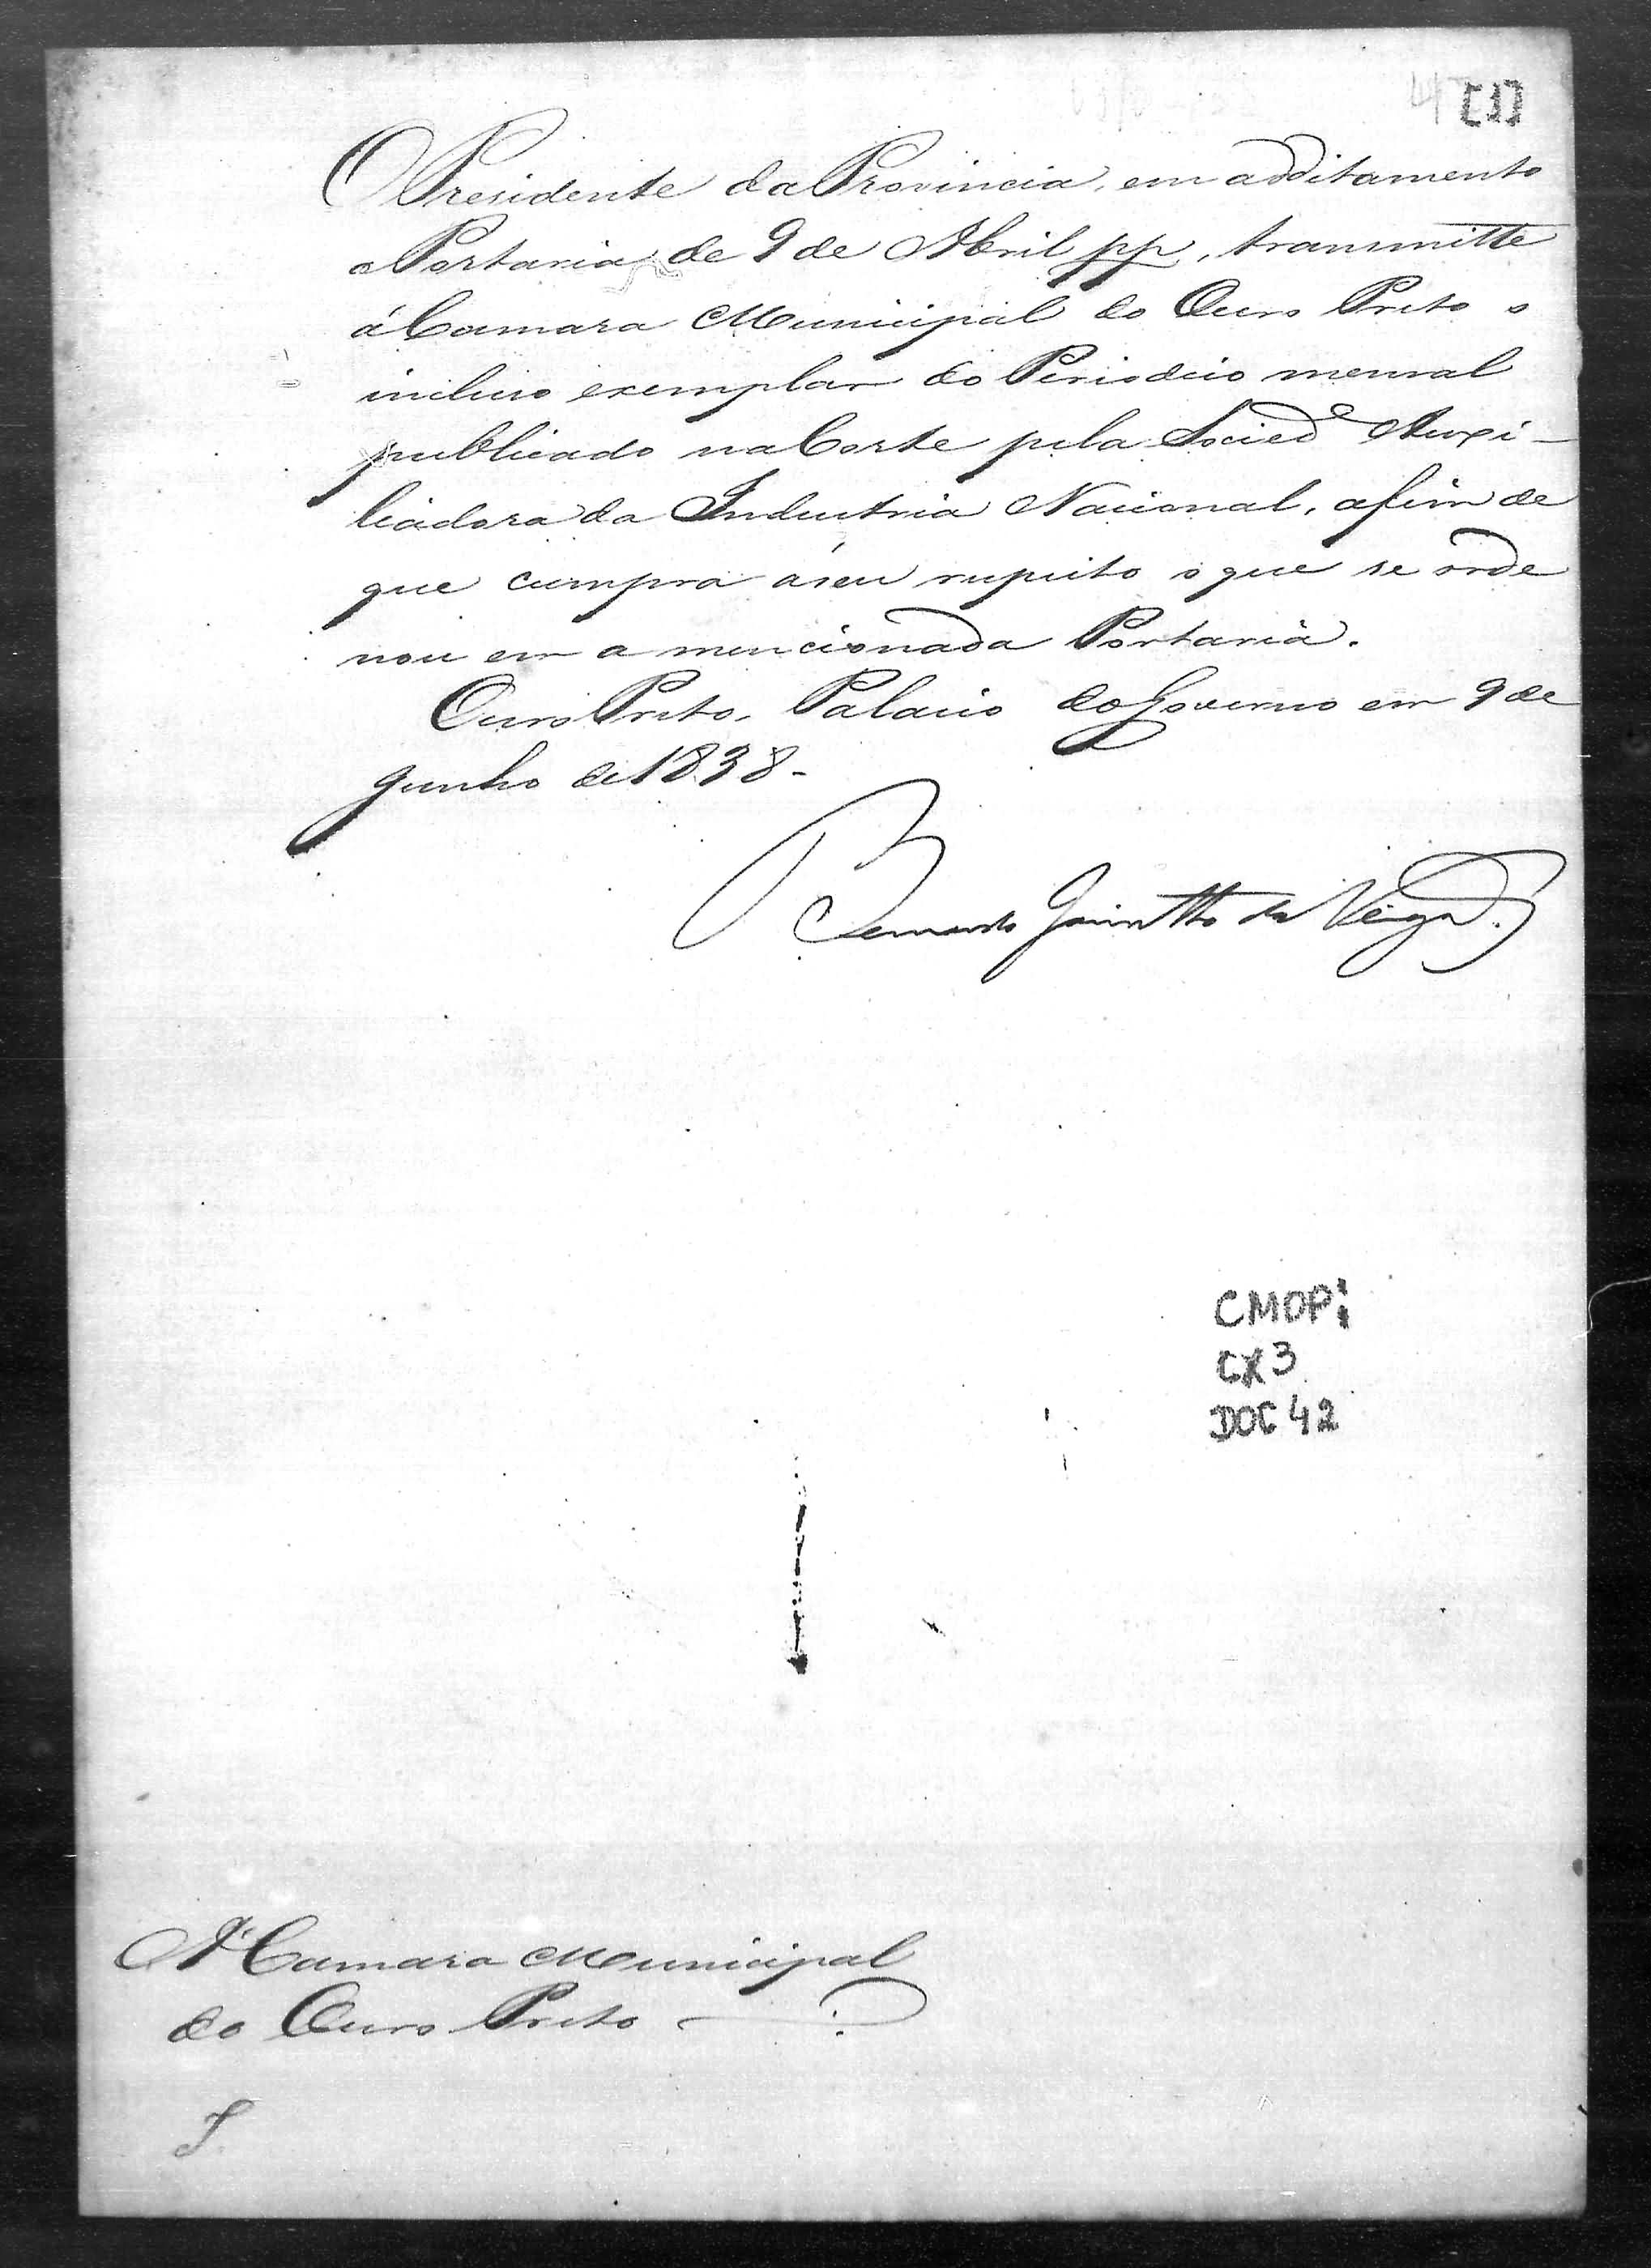 [1]
O Presidente da Provincia, em additamento
a Portaria de 9 de Abril pp, transmitte
á Camara Municipal do Ouro Preto o
incluso exemplar do Periodico mensal
publicado na Corte pela Socied.e Auxi-
liadora da Industria Nacional, afim de
que cumpra á seu respeito o que se orde
nou em a mencionada Portaria.
Ouro Preto, Palacio do Governo em 9 de
Junho de 1838-
Bernardo Jacintho da Veiga.
CMOP:
CX3
DOC 42
Á Camara Municipal
do Ouro Preto